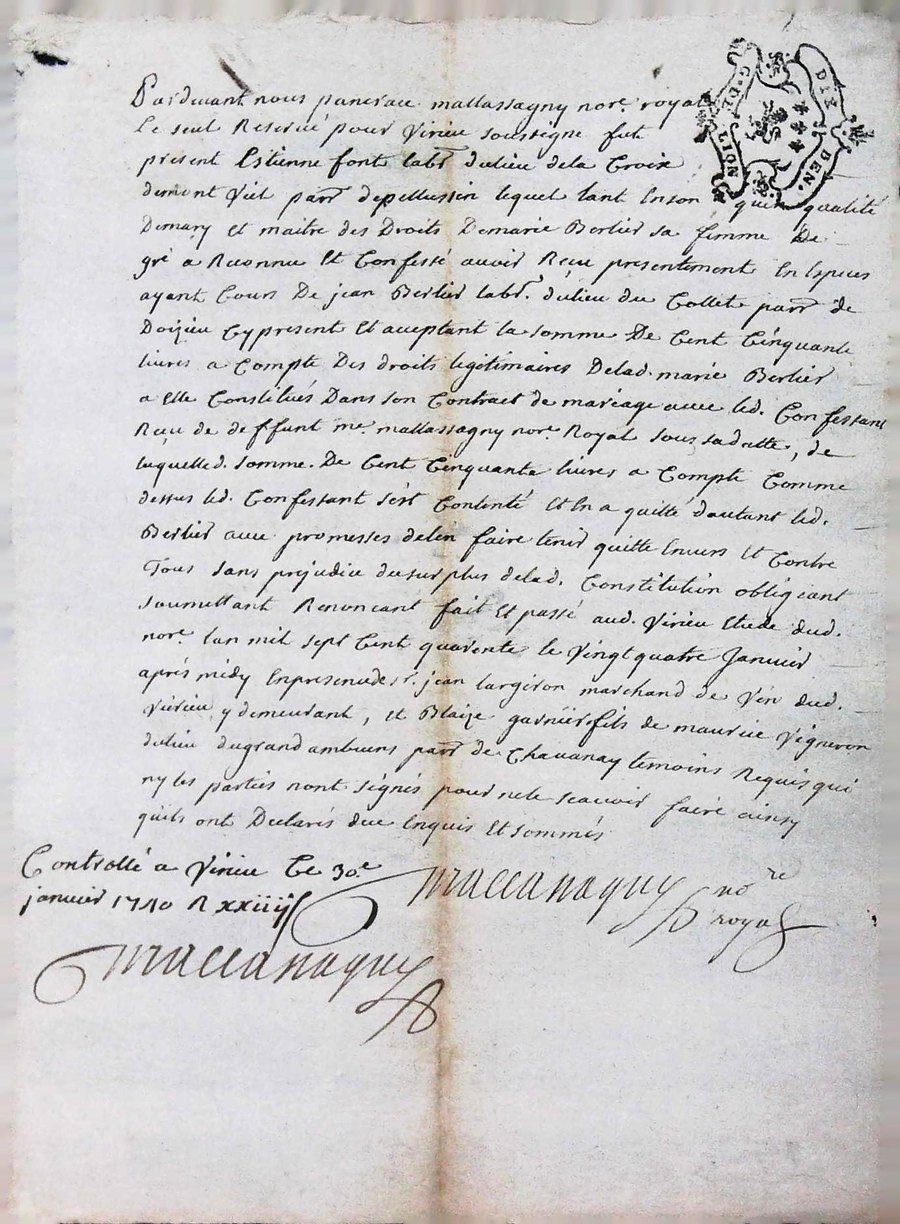 G. DE LION
DIX DEN.
Pardevant nous pancrace mallassagny nore. royal
Le seul Reservé pour Virieu soussigne fut
present Estienne font labr. du lieu de la Croix
demont Viel parr. de pellussin lequel tant En son quen qualité
Demary et maitre des Droits De marie Berlier sa femme De
gré a Reconnu Et Confessé avoir Receu presentement En Especes
ayant Cours De jean Berlier labr. du lieu du Collet parr. de
Doizieu Cy present Et acceptant la somme De Cent Cinquante
livres a Compte Des droits legitimaires De lad. marie Berlier
a Elle Constitués Dans son Contract de mareage avec led. Confessant
Receu de deffunt me. mallassagny nore. Royal sous sa datte, de
laquelle d. somme. De Cent Cinquante livres a Compte Comme
dessus led. Confessant sést Contenté Et En a quitté dautant led.
Berlier avec promesses de len faire tenir quitte Envers Et Contre
Tous sans prejudice du surplus de lad. Constitution obligeant
soumettant Renoncant fait Et passé aud. Virieu Etude dud.
nore. lan mil sept Cent quarente le Vingt quatre Janvier
aprés midy En presence de sr. jean largeron marchand de Vin dud.
Virieu y demeurant, et Blaize garnier fils de maurice Vigneron
du lieu du grand ambuens parr. de Chavanay temoins Requis qui
ny les parties nont signés pour ne le scavoir faire ainsy
quils ont Declarés due Enquis Et sommés
Controllé a Virieu Ce 30.e
janvier 1740 R xxiiij s
Maccassaguy nore
royal
Maccassaguy